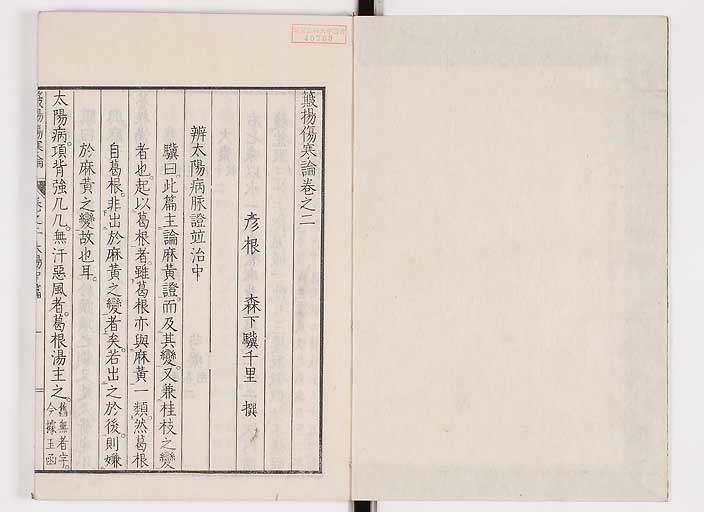 簸揚傷寒論卷之二
彥根　森下驥千里　撰
辨太陽病脉證並治中
驥曰。此篇主論麻黃證。而及其變。又兼桂枝之變
者也。起以葛根者。雖葛根亦與麻黃一類。然葛根
自葛根。非出於麻黃之變者矣。若出之於後。則嫌
於麻黃之變故也耳。
太陽病。項背強几几。無汗惡風者。葛根湯主之。舊無者字。
今據玉函
40703